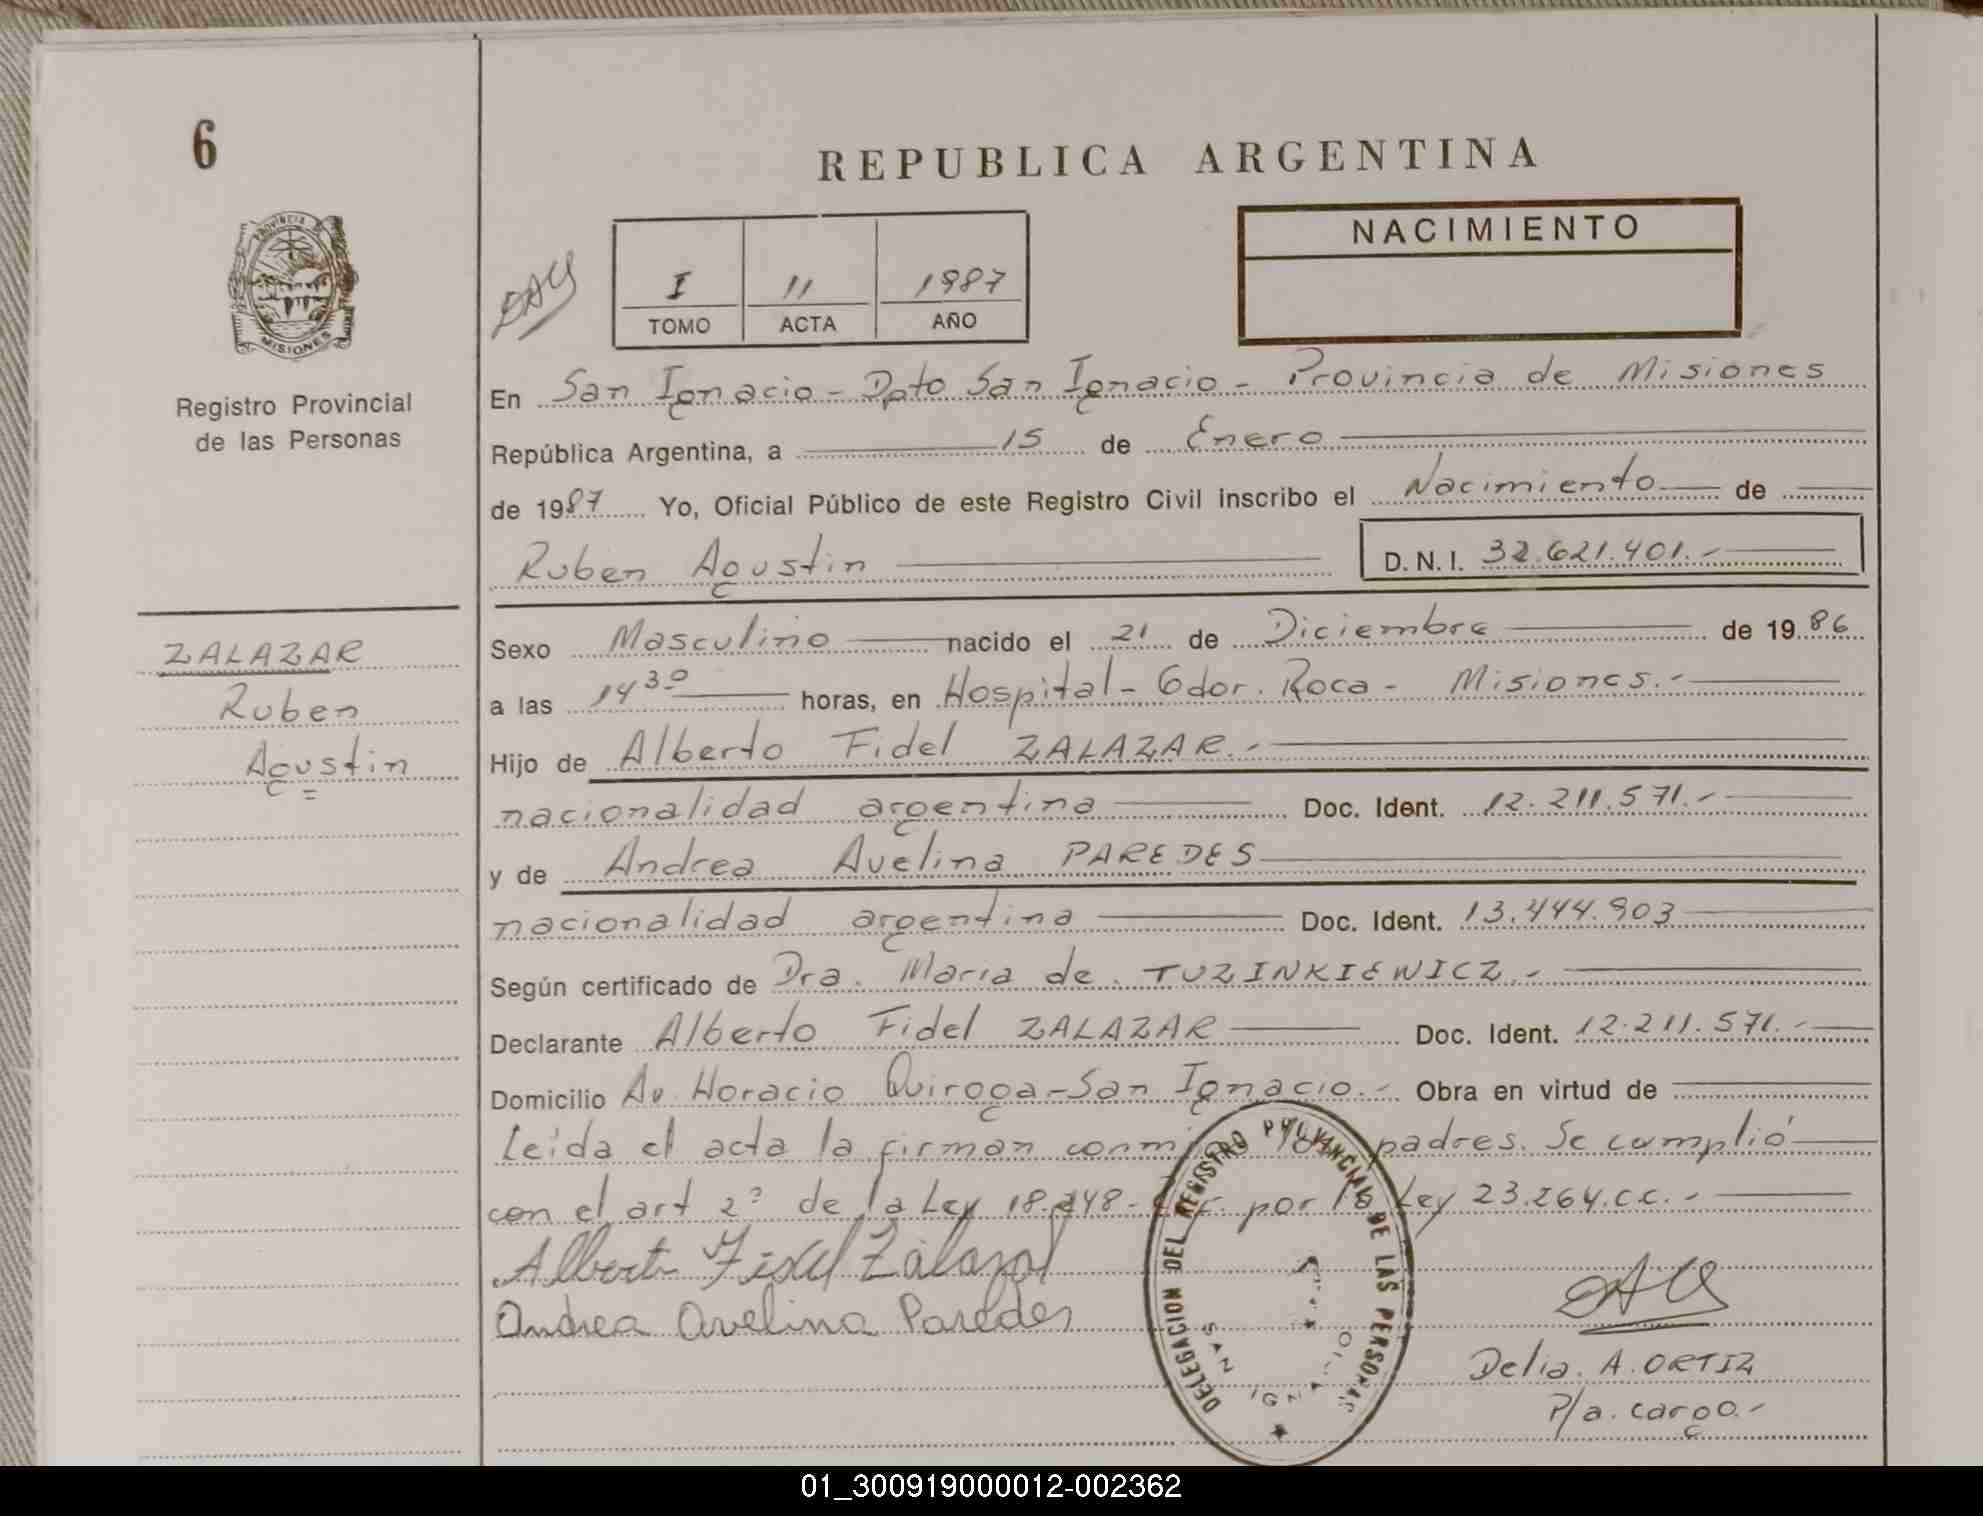 6
REPUBLICA ARGENTINA
NACIMIENTO
I 11 1987
TOMO ACTA AÑO
Provincia
MISIONES
Registro Provincial
de las Personas
En San Ignacio - Dpto San Ignacio - Provincia de Misiones
República Argentina, a 15 de Enero
de 1987 Yo, Oficial Público de este Registro Civil inscribo el Nacimiento de
Ruben Agustin D. N. I. 32.621.401.-
ZALAZAR
Ruben
Agustin
Sexo Masculino nacido el 21 de Diciembre de 1986
a las 14 30 horas, en Hospital - Gdor. Roca - Misiones.-
Hijo de Alberto Fidel ZALAZAR.-
nacionalidad argentina Doc. Ident. 12.211.571.-
y de Andrea Avelina PAREDES
nacionalidad argentina Doc. Ident. 13.444.903
Según certificado de Dra. Maria de. TUZINKIEWICZ.-
Declarante Alberto Fidel ZALAZAR Doc. Ident. 12.211.571.-
Domicilio Av. Horacio Quiroga - San Ignacio.- Obra en virtud de
Leída el acta la firman conmigo los padres. Se cumplió
con el art 2º de la Ley 18.248 - por la Ley 23.264.c.c.-
Alberto Fidel Zalazar
Andrea Avelina Paredes
DELEGACION DEL REGISTRO PROVINCIAL DE LAS PERSONAS
SAN IGNACIO
Delia. A. ORTIZ
P/a. cargo.-
01_300919000012-002362